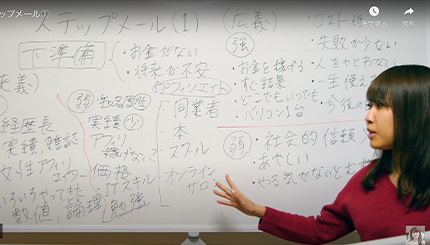 ップメール①
後で見る
共有
ステップメール(1)
(広義)
下準備
・お金がない
・将来が不安
強
失敗が少ない
・お金を稼げる
・すぐ結果
・どこでもいつでも
パソコン1台
一生使え
今後の
(アフィリエイト)
弱
・知名度
実績少
・アフィリ
稼げない
・価格
・ITスキル
・論理
勉強
同業者
・本
・スクール
・オンライン
サロ
弱
・社会的信頼
・あやしい
・やる気がないと
経歴長
実績
雑誌
女性アフィリ
エイター
いろいろやってきた
数値